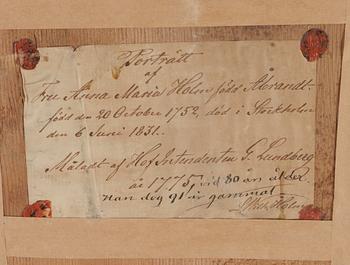 Porträtt
af
Fru Anna Maria Holm född Åbrandt
född den 20 October 1752, död i Stockholm
den 6 Juni 1831.
Måladt af Hof Intendenten G. Lundberg
år 1775, vid 80 års ålder.
han dog 91 år gammal
Holm